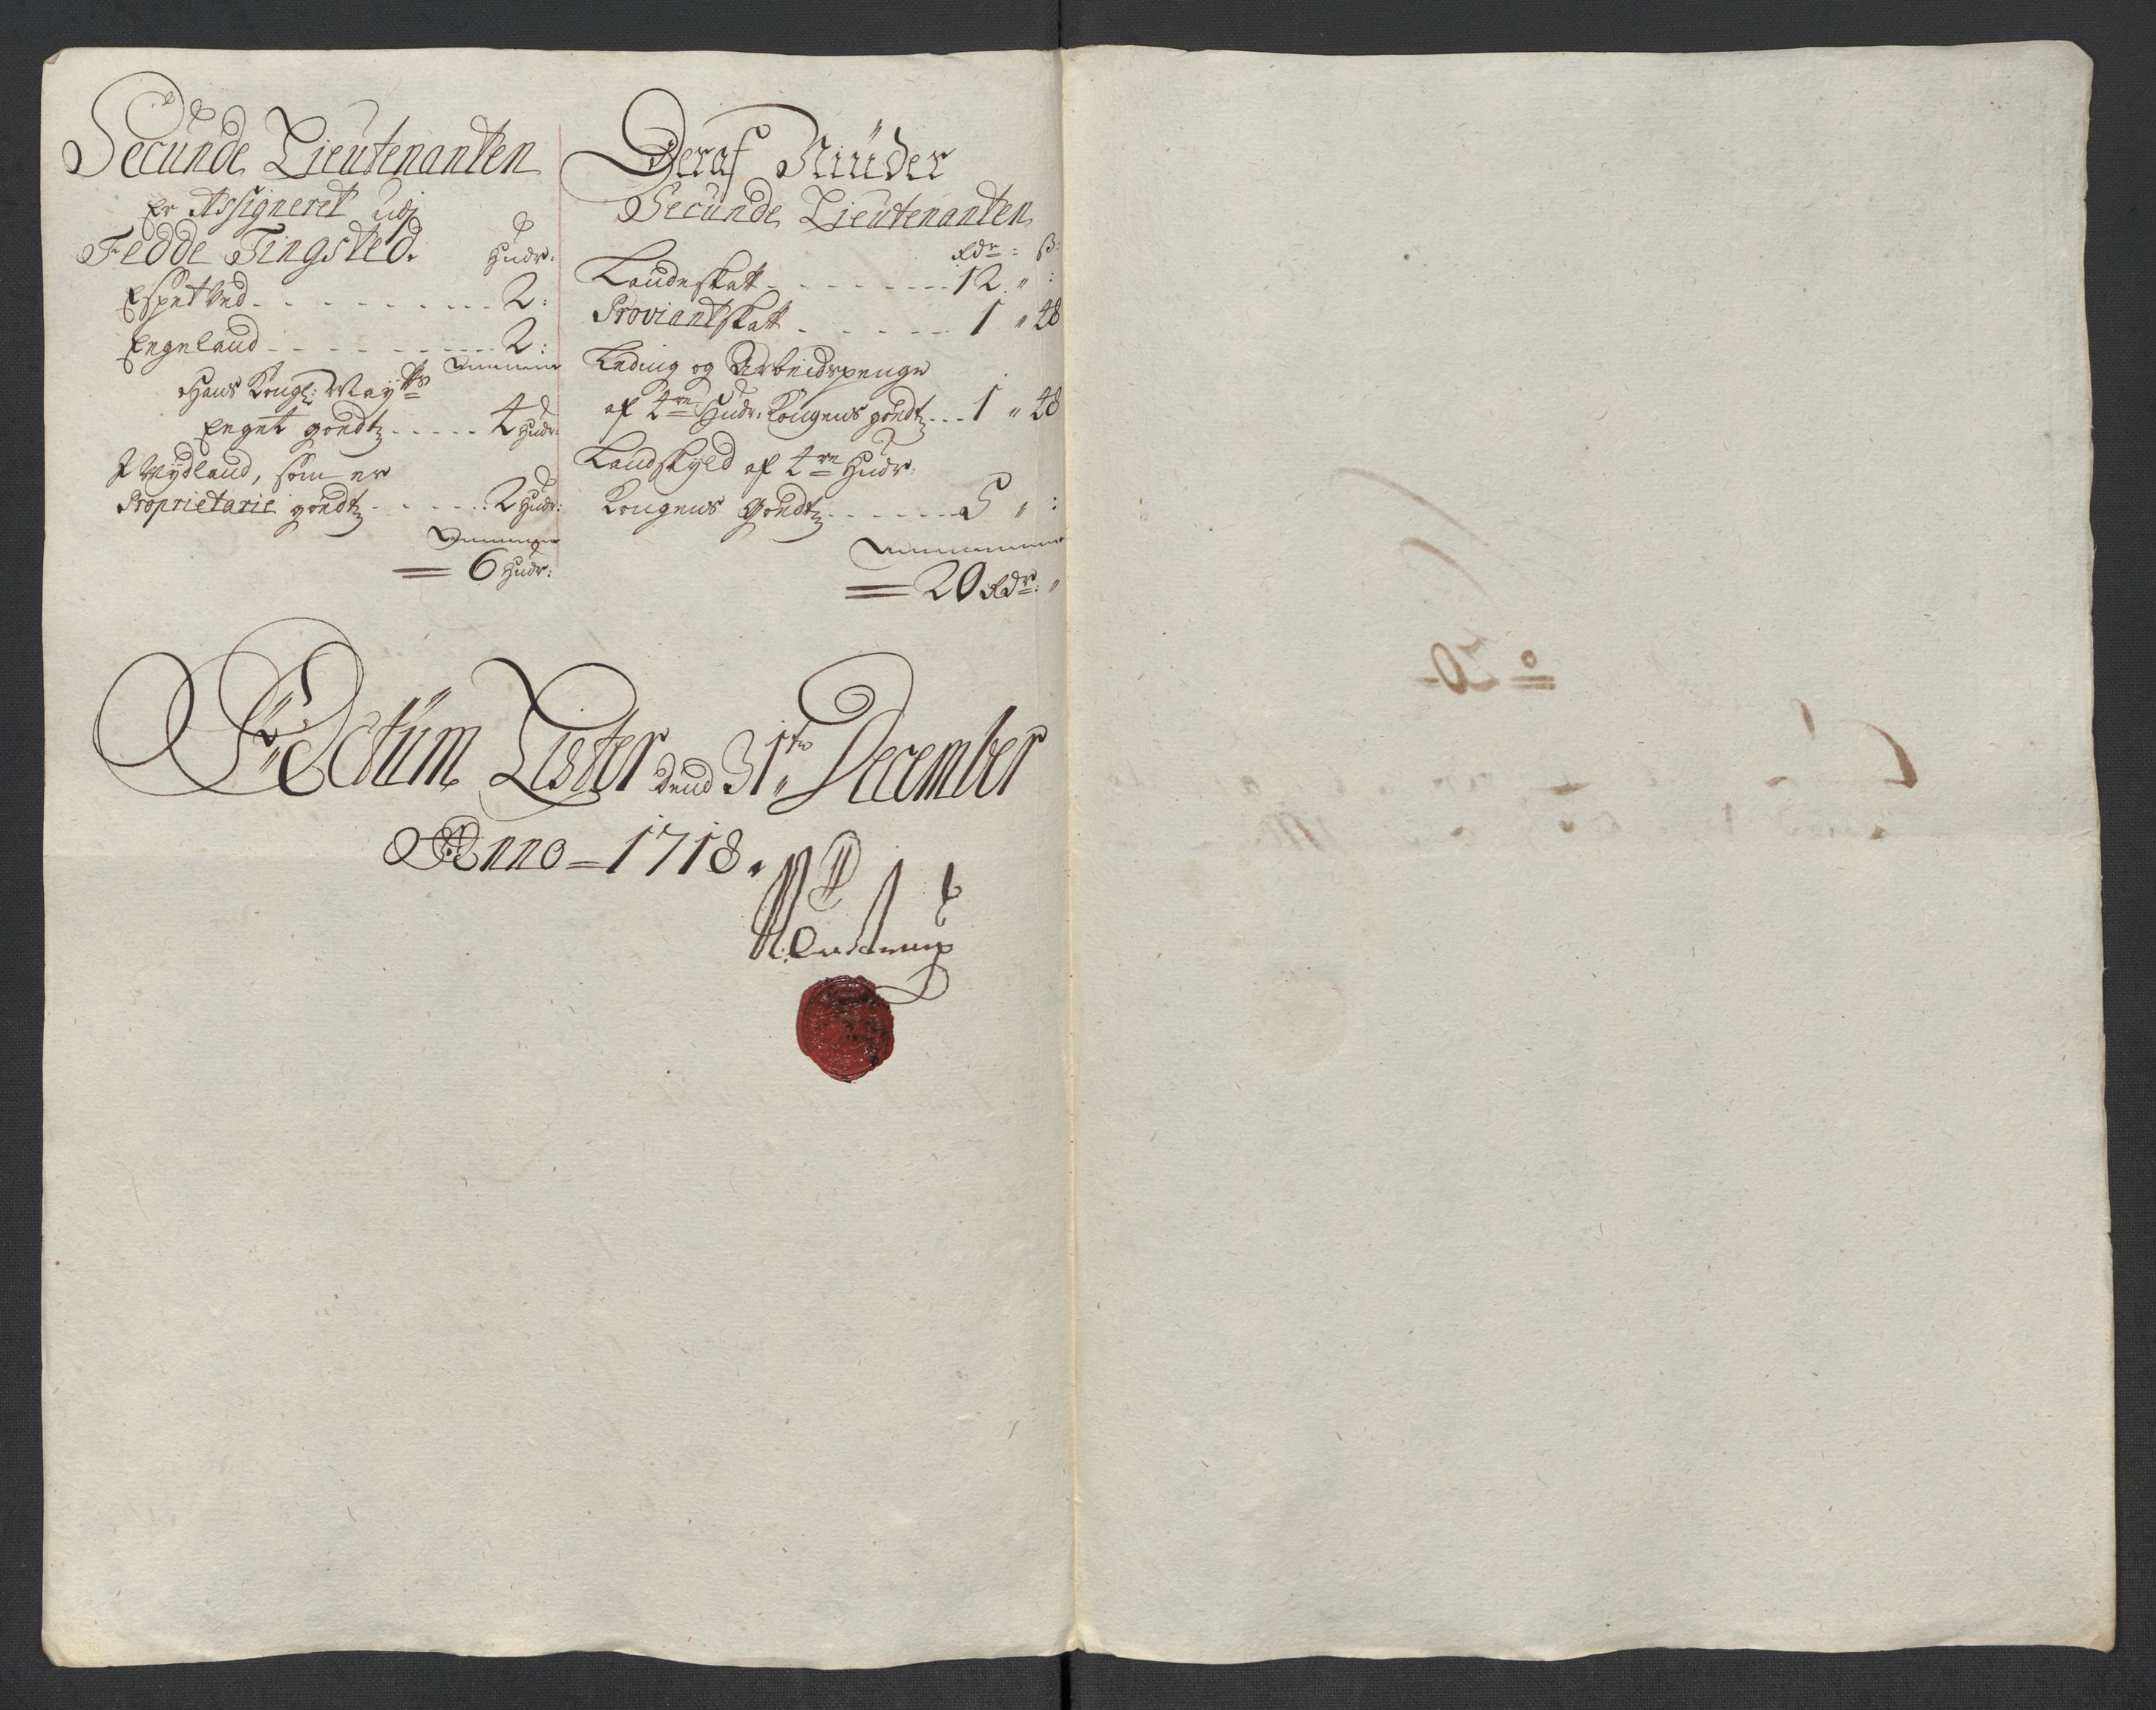 Secunde Lieutenanten
Er Assigneret udj
Fedde Tingsted. Hudr:
Espetved - - - - - - - - 2:
Engeland - - - - - - - - 2:
Hans Kongl: May:tts
Eeget goedtz . . . . . 4 Hudr:
J Mydland, som er
Proprietarie goedtz . . . . . 2 Hudr:
= 6 Hudr:
Deraf Niüder
Secunde Lieutenanten
Rdr: ß:
Landeskatt - - - - - - - 12 " :
Proviantskatt - - - - - - 1 " 48
Leding og Arbeidspenge
af 4re Hudr: Kongens goedtz - - - 1 " 48
Landskyld af 4re Hudr:
Kongens Goedtz - - - - - - 5 " :
= 20 Rdr: "
Actum Lister dend 31te December
Anno = 1718.